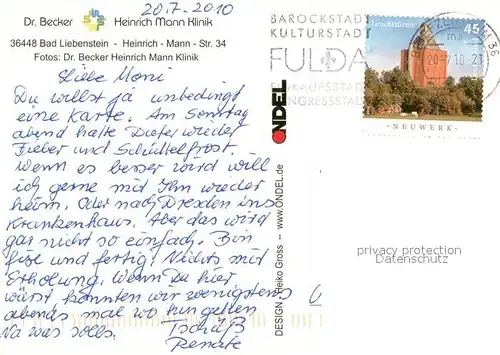 20.7.2010
Dr. Becker Heinrich Mann Klinik
36448 Bad Liebenstein - Heinrich - Mann - Str. 34
Fotos: Dr. Becker Heinrich Mann Klinik
Liebe Moni
Du willst ja unbedingt
eine Karte. Am Sonntag
abend hatte Dieter wieder
Fieber und Schüttelfrost.
Wenn es besser wird will
ich gerne mit Ihm wieder
heim. Oder nach Dresden ins
Krankenhaus. Aber das wird
gar nicht so einfach. Bin
fix und fertig. Nichts mit
Erholung. Wenn Du hier
wärst könnten wir wenigstens
abends mal wo hin gehen
Na was solls. Tschüß
Renate
ONDEL
DESIGN Heiko Gross – www.ONDEL.de
BAROCKSTADT
KULTURSTADT
FULDA
EINKAUFSSTADT
KONGRESSSTADT
BRIEFZENTRUM 36
20.-7.10-21
Leuchttürme 45
- NEUWERK -
privacy protection
Datenschutz